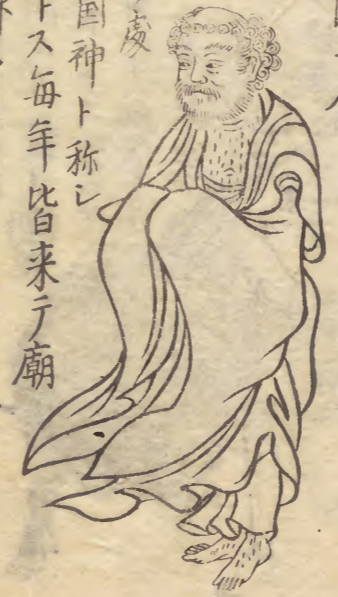 處
国神ト称シ
トス毎年皆来テ廟